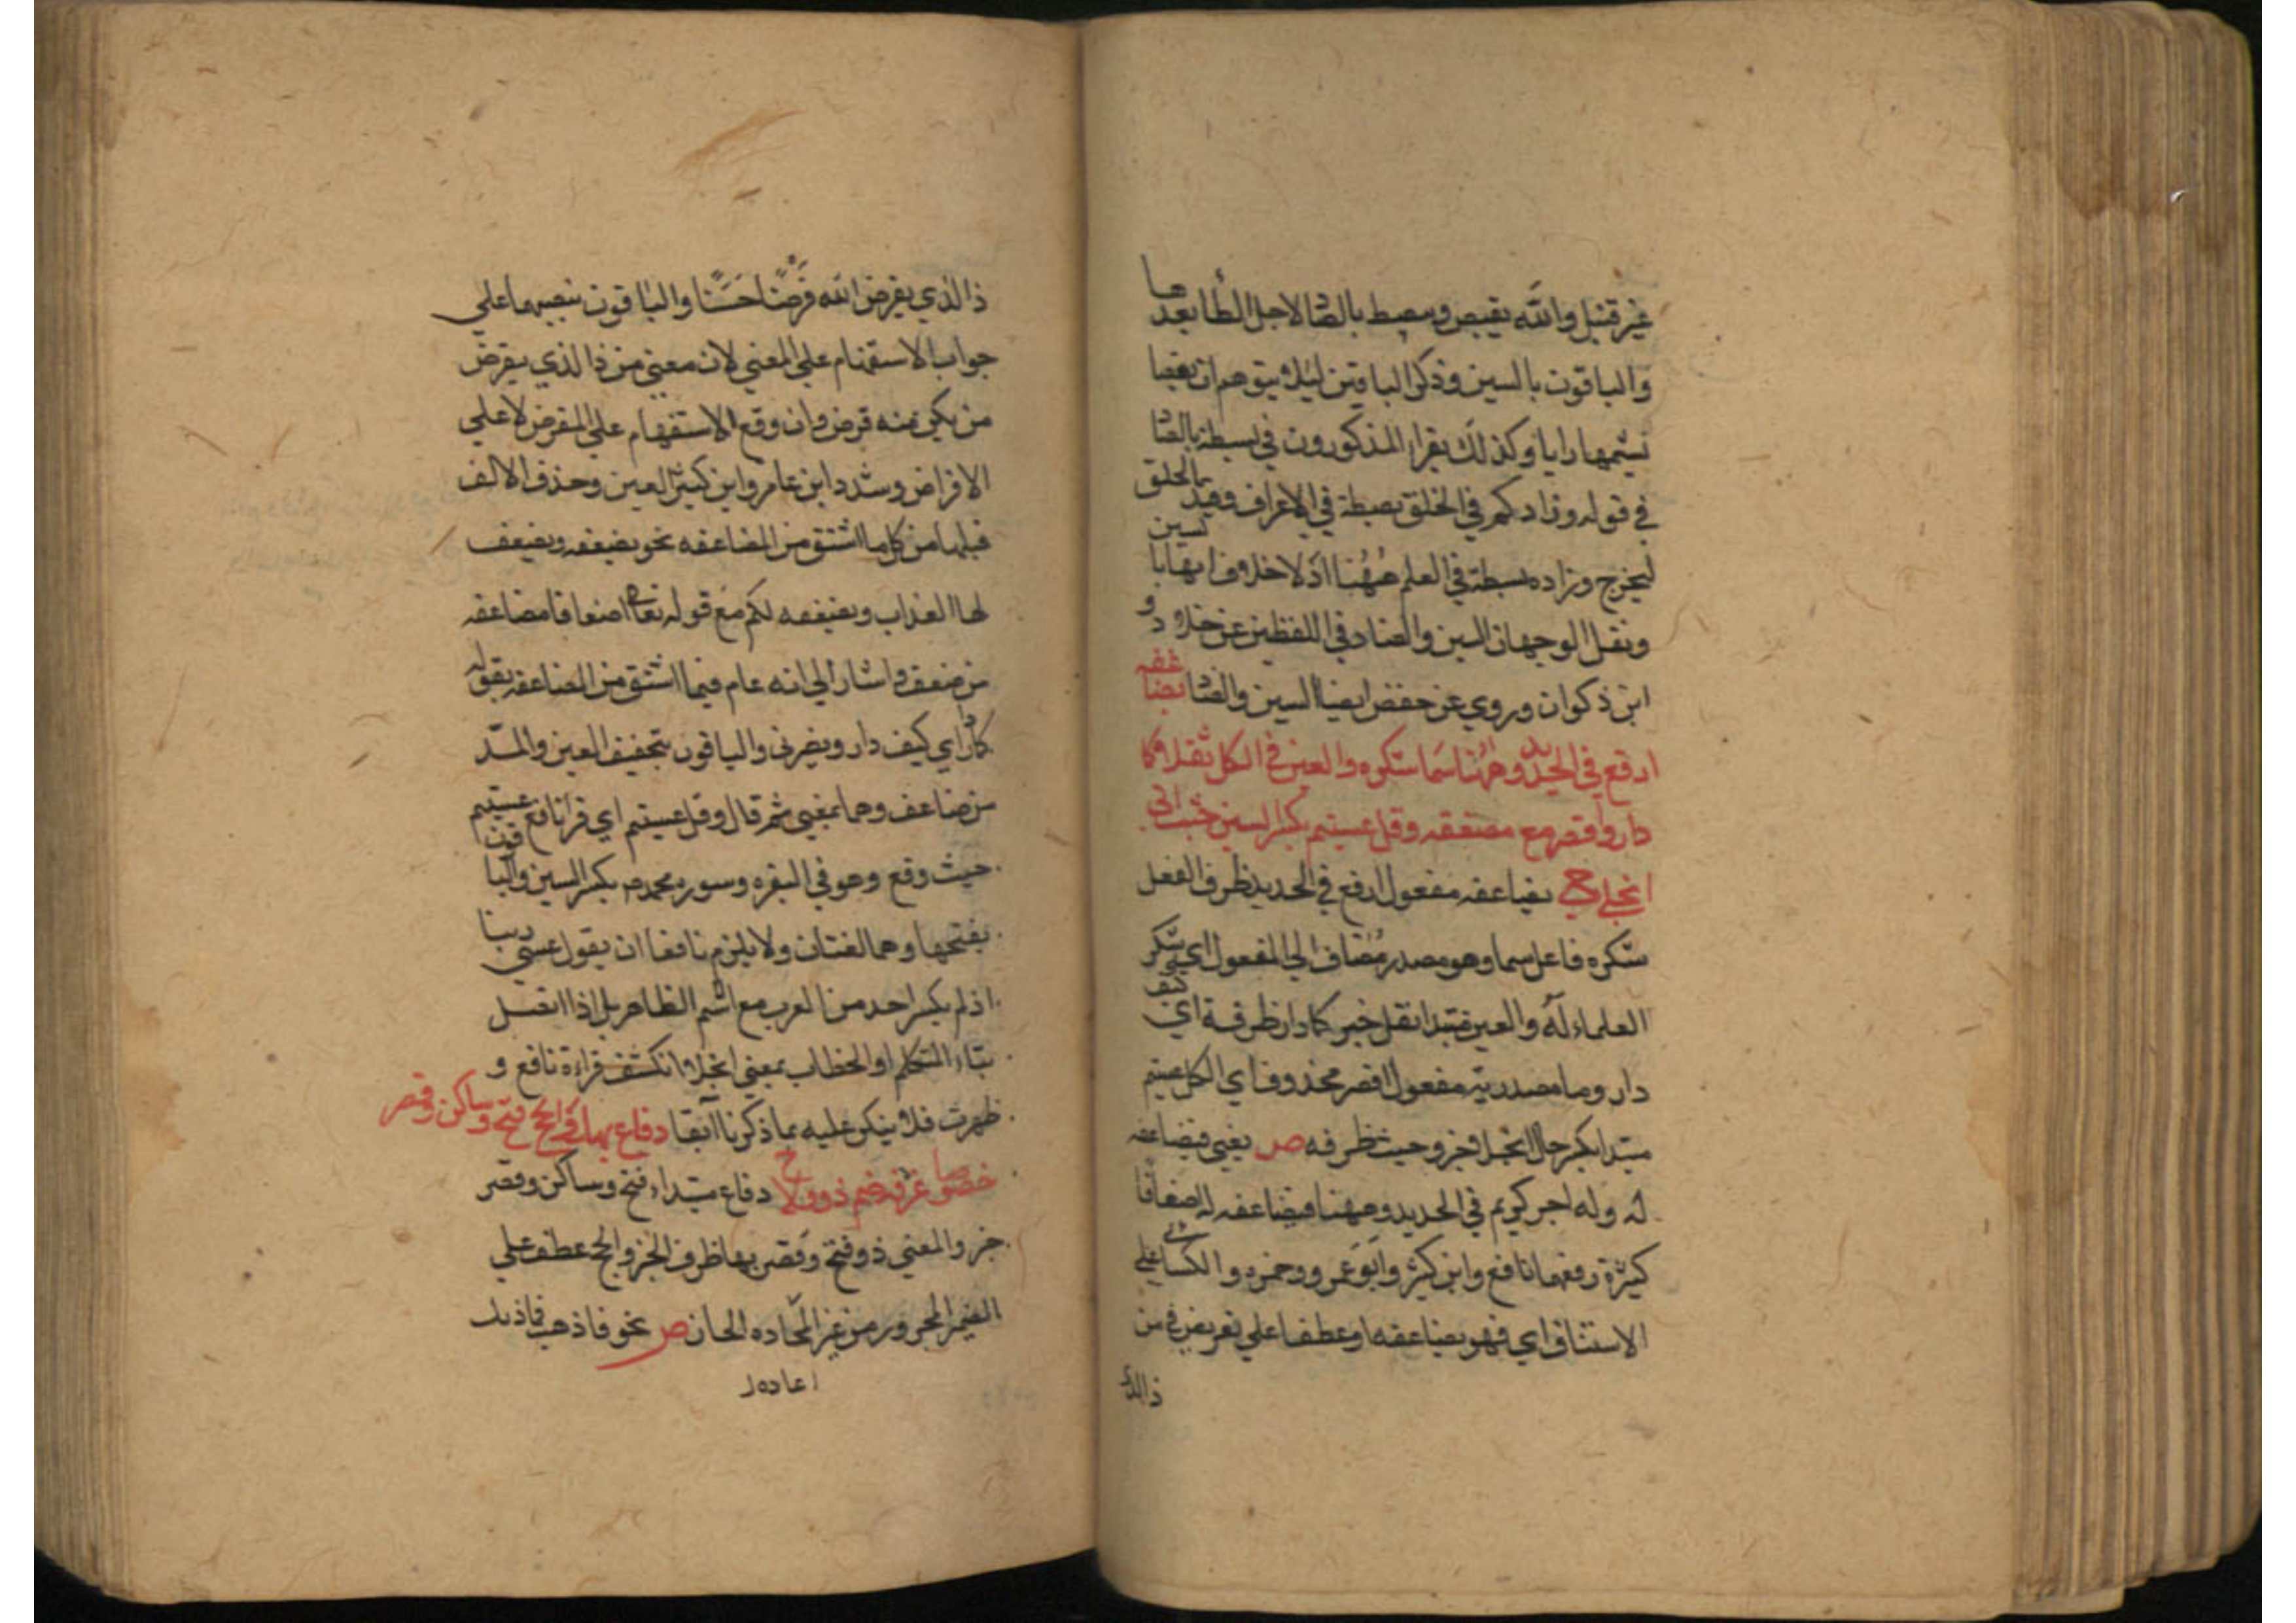 غير قنبل والله يقبض ويبصط بالصاد لاجل الطا بعدها
والباقون بالسين وذكر الباقين ليلا يتوهم ان بعضا
يشمها زايا وكذلك يقرا المذكورون في بسطة بالصاد
في قوله وزادكم في الخلق بصطة في الاعراف وقيد بالخلق
ليخرج وزاده بسطة في العلم ههنا اذ لا خلاف انها بالسين
ونقل الوجهان السين والصاد في اللفظين عن خلاد و
ابن ذكوان وروي عن حفص ايضا السين والصاد يضاعفه
ارفع في الحديد وههنا سما شكره والعين في الكل ثقلا كما
دار واقصر مع مضعفة وقل عسيتم بكسر السين حيث اتى
انجلى ح يضاعفه مفعول ارفع في الحديد ظرف الفعل
شكره فاعل سما وهو مصدر مضاف الي المفعول اي شكر
العلماء له والعين مبتدا ثقل خبره كما دار ظرفه اي كيف
دار وما مصدرية مفعول اقصر محذوف اي الكل عسيتم
مبتدا بكسر حال انجلا خبر وحيث ظرفه ص يعني فيضاعفه
له وله اجر كريم في الحديد وههنا فيضاعفه له اضعافا
كثيرة رفعهما نافع وابن كثير وابو عمرو وحمزه والكسائي علي
الاستئناف اي فهو يضاعفه او عطفا علي يقرض في من
ذا الذي
ذا الذي يقرض الله قرضا حسنا والباقون بنصبهما علي
جواب الاستفهام علي المعني لان معني من ذا الذي يقرض
من يكن منه قرض وان وقع الاستفهام علي المقرض لا علي
الاقراض وشدد ابن عامر وابن كثير العين وحذف الالف
قبلها من كل ما اشتق من المضاعفه نحو يضعفه ويضعف
لها العذاب ويضعفه لكم مع قوله تعا اضعافا مضاعفه
من ضعف واشار الي انه عام فيما اشتق من المضاعفه بقوله
كما دار اي كيف دار والباقون بتخفيف العين والمد
من ضاعف وهما بمعني ثم قال وقل عسيتم اي قرا نافع عسيتم
حيث وقع وهو في البقره وسوره محمد بكسر السين والباقون
بفتحها وهما لغتان ولا يلزم نافعا ان يقول عسي ربنا
اذ لم يكسر احد من العرب مع اسم الظاهر بل اذا اتصل
بتاء المتكلم او الخطاب بمعني انجلا انكشف قراءة نافع و
ظهرت فلا ينكر عليه بما ذكرنا آنفا دفاع بها والحج فتح وساكن وقصر
خصوصا غرفة ضم ذو ولا ح دفاع مبتدا فتح وساكن وقصر
خبر والمعني ذو فتح وقصر بها ظرف الخبر والحج عطف علي
الضمير المجرور من غير اعاده الجار ص نحو فاذهب فاذيك
اعاده ا